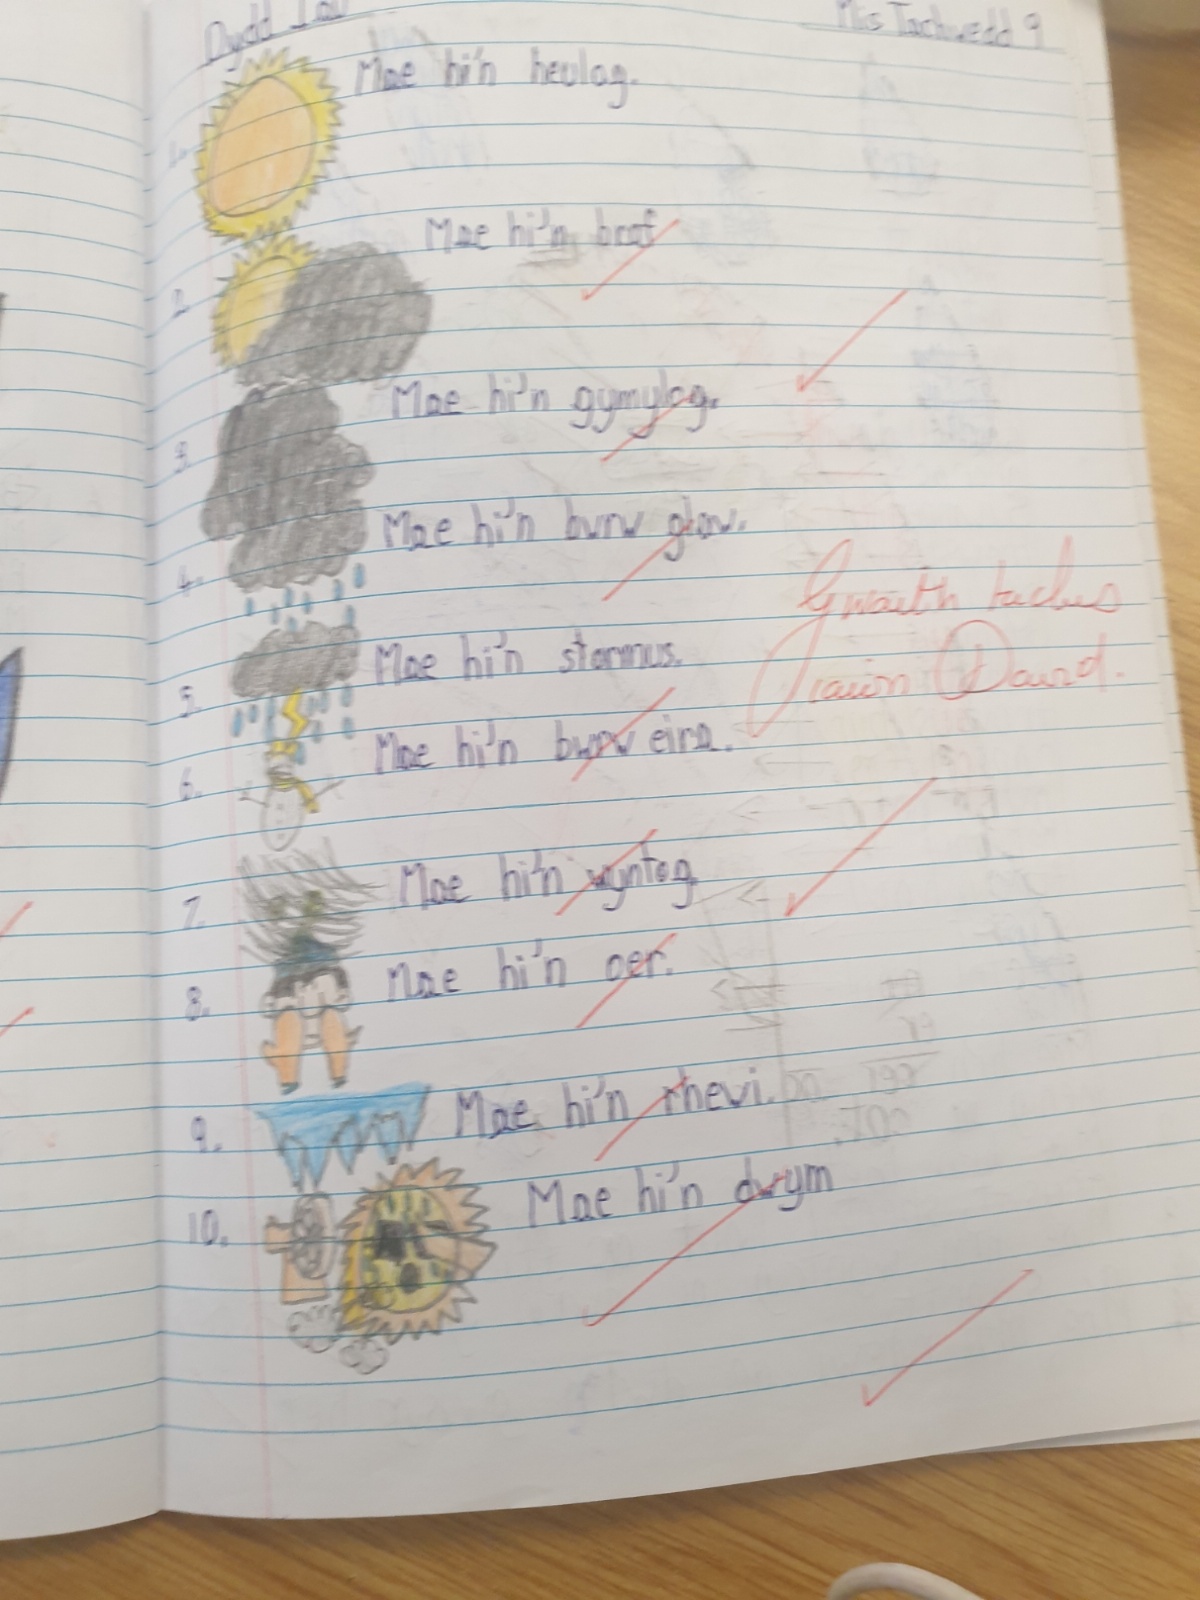 Dydd Iau
Mis Tachwedd 9
1. Mae hi'n heulog.
2. Mae hi'n braf
3. Mae hi'n gymylog.
4. Mae hi'n bwrw glaw.
5. Mae hi'n stormus.
6. Mae hi'n bwrw eira.
7. Mae hi'n wyntog
8. Mae hi'n oer.
9. Mae hi'n rhewi.
10. Mae hi'n dwym
Gwaith taclus
iawn David.